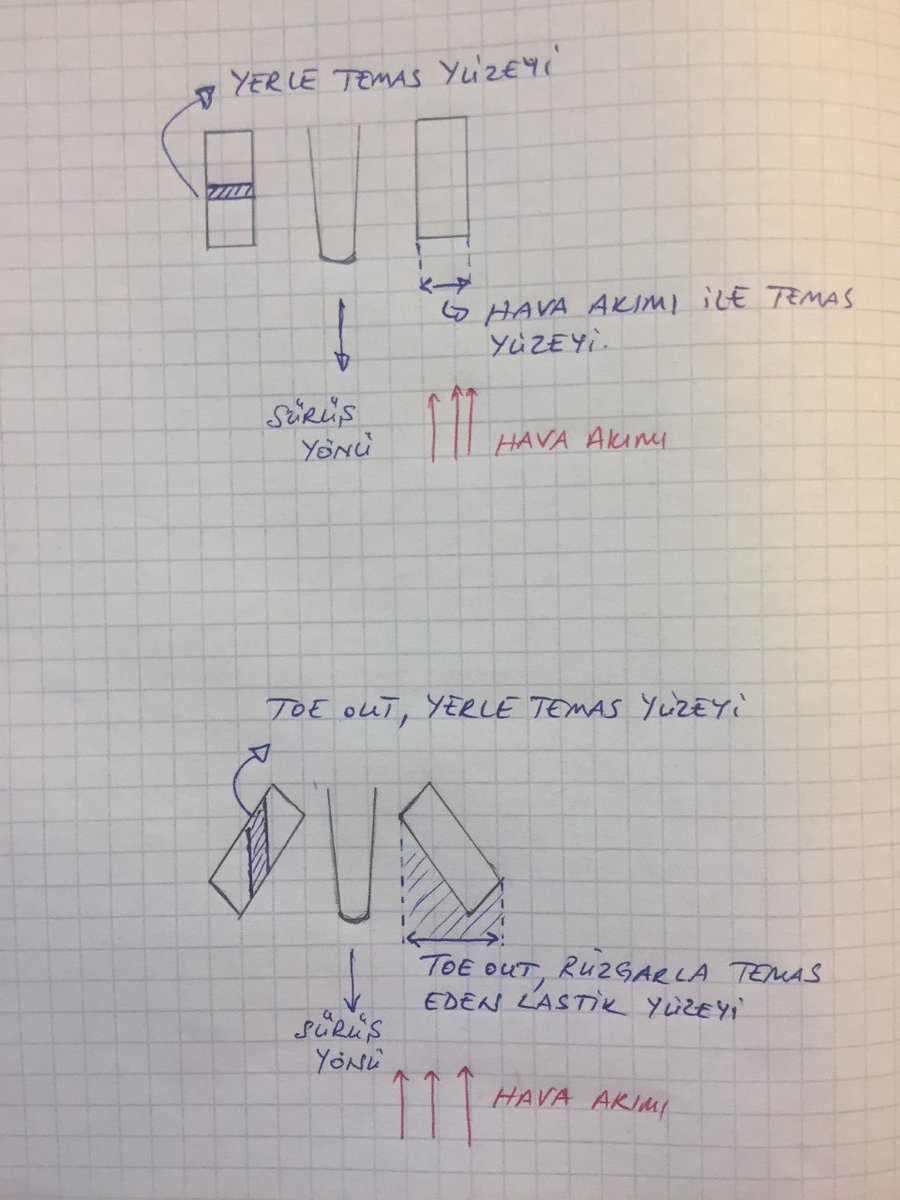 YERLE TEMAS YÜZEYİ
HAVA AKIMI İLE TEMAS
YÜZEYİ.
SÜRÜŞ
YÖNÜ
HAVA AKIMI
TOE OUT, YERLE TEMAS YÜZEYİ
TOE OUT, RÜZGARLA TEMAS
EDEN LASTİK YÜZEYİ
SÜRÜŞ
YÖNÜ
HAVA AKIMI